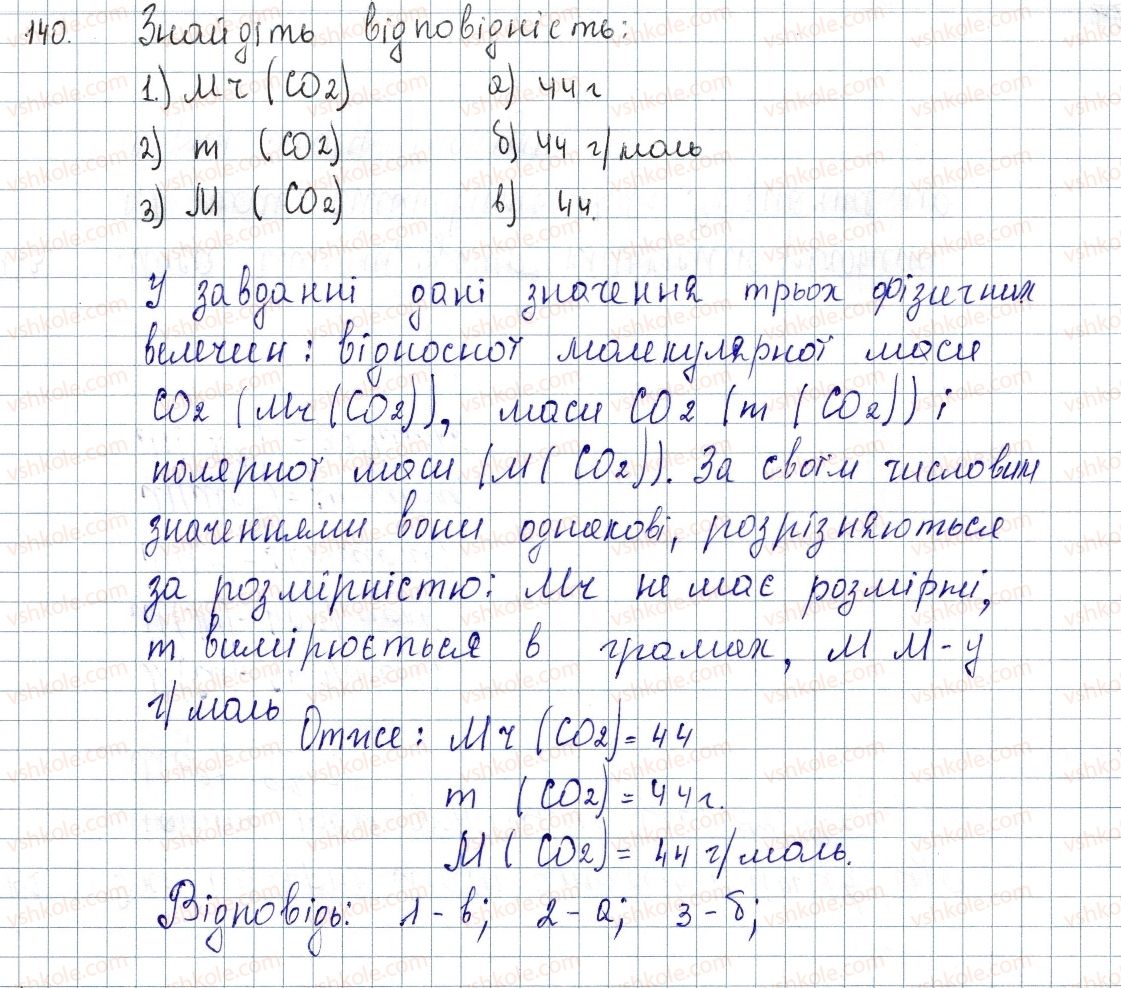 140. Знайдіть відповідність:
1.) Мч (CO2) а) 44 г
2) m (CO2) б) 44 г/моль
3) М (CO2) в) 44.
У завданні дані значення трьох фізичних
велечин: відносної молекулярної маси
CO2 (Мч (CO2)), маси CO2 (m (CO2)) і
полярної маси (М (CO2)). За своїм числовим
значеннями вони однакові, розрізняються
за розмірністю: Мч не має розмірні,
m вимірюється в грамах, М М-у
г/моль
Отже: Мч (CO2) = 44
m (CO2) = 44г.
М (CO2) = 44 г/моль.
Відповідь: 1-в; 2-а; 3-б;